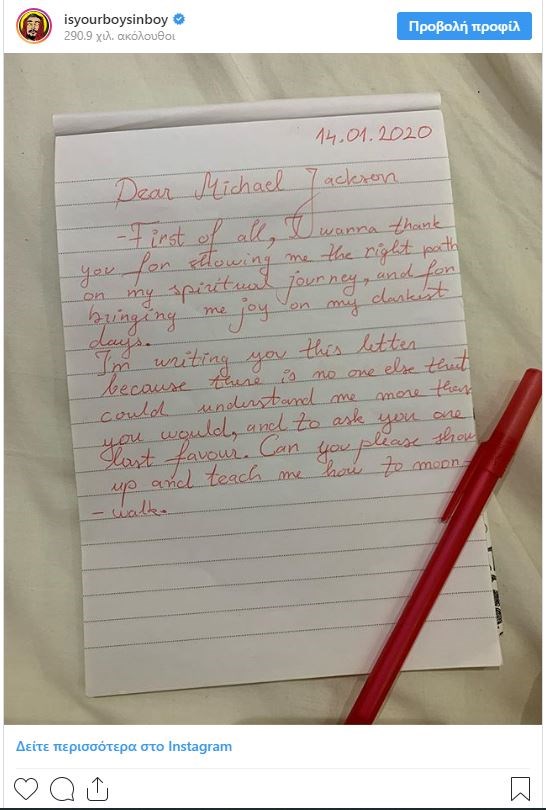 isyourboysinboy
290.9 χιλ. ακόλουθοι
Προβολή προφίλ
14.01.2020
Dear Michael Jackson
-First of all, I wanna thank
you for showing me the right path
on my spiritual journey, and for
bringing me joy on my darkest
days.
I'm writing you this letter
because there is no one else that
could understand me more than
you would, and to ask you one
last favour. Can you please show
up and teach me how to moon-
-walk.
Δείτε περισσότερα στο Instagram